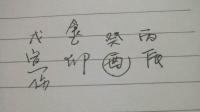 戊 食 癸 丙
寅 卯 酉 辰
伤